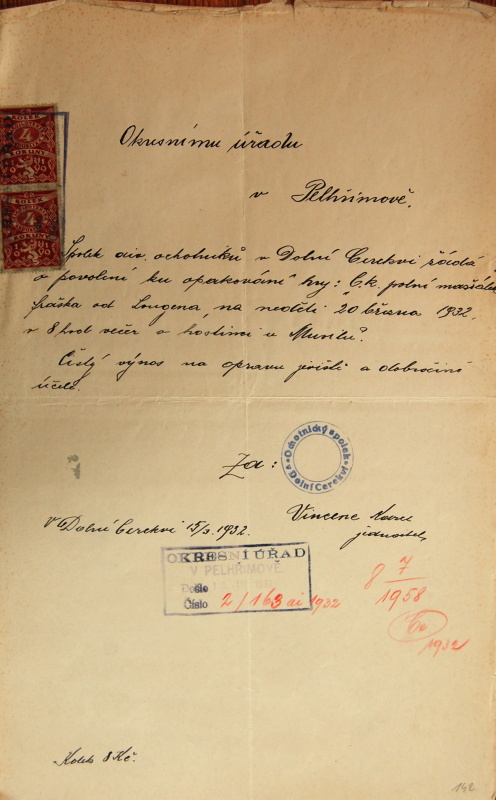 Okresnímu úřadu
v Pelhřimově.
ČS
KOLEK
4
KORUNY
19
ČS
KOLEK
4
KORUNY
19
Spolek div. ochotníků v Dolní Cerekvi žádá
o povolení ku opakování hry: C. k. polní maršálek
fraška od Longena, na neděli 20 března 1932,
v 8 hod večer v hostinci u
Čistý výnos na opravu jeviště a dobročinné
účele.
Za:
Ochotnický spolek
v Dolní Cerekvi
V Dolní Cerekvi 15/3. 1932.
Vincenc Karel
jednatel,
OKRESNÍ ÚŘAD
V PELHŘIMOVĚ
Došlo
Číslo 2/163 ai 1932
8 7/1958
1932
Kolek 8 Kč.
142